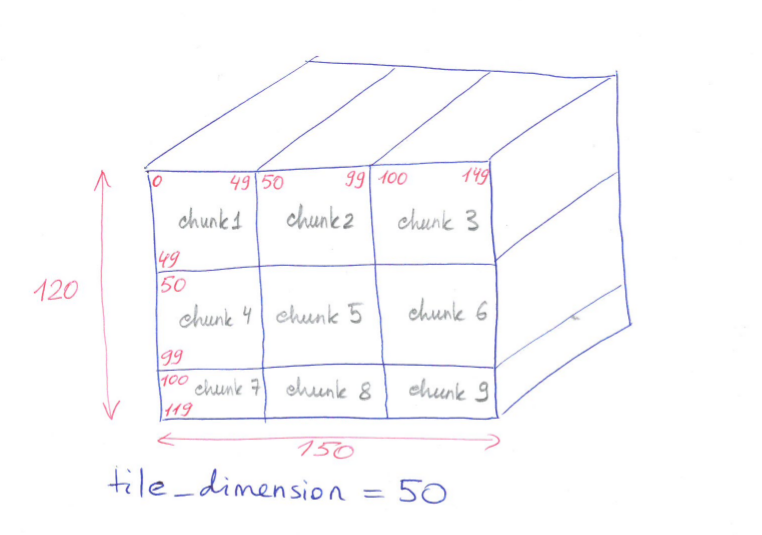 0 49 50 99 100 149
chunk1 chunk2 chunk 3
49
50
120
chunk 4 chunk 5 chunk 6
99
100 chunk 7 chunk 8 chunk 9
119
150
tile_dimension = 50